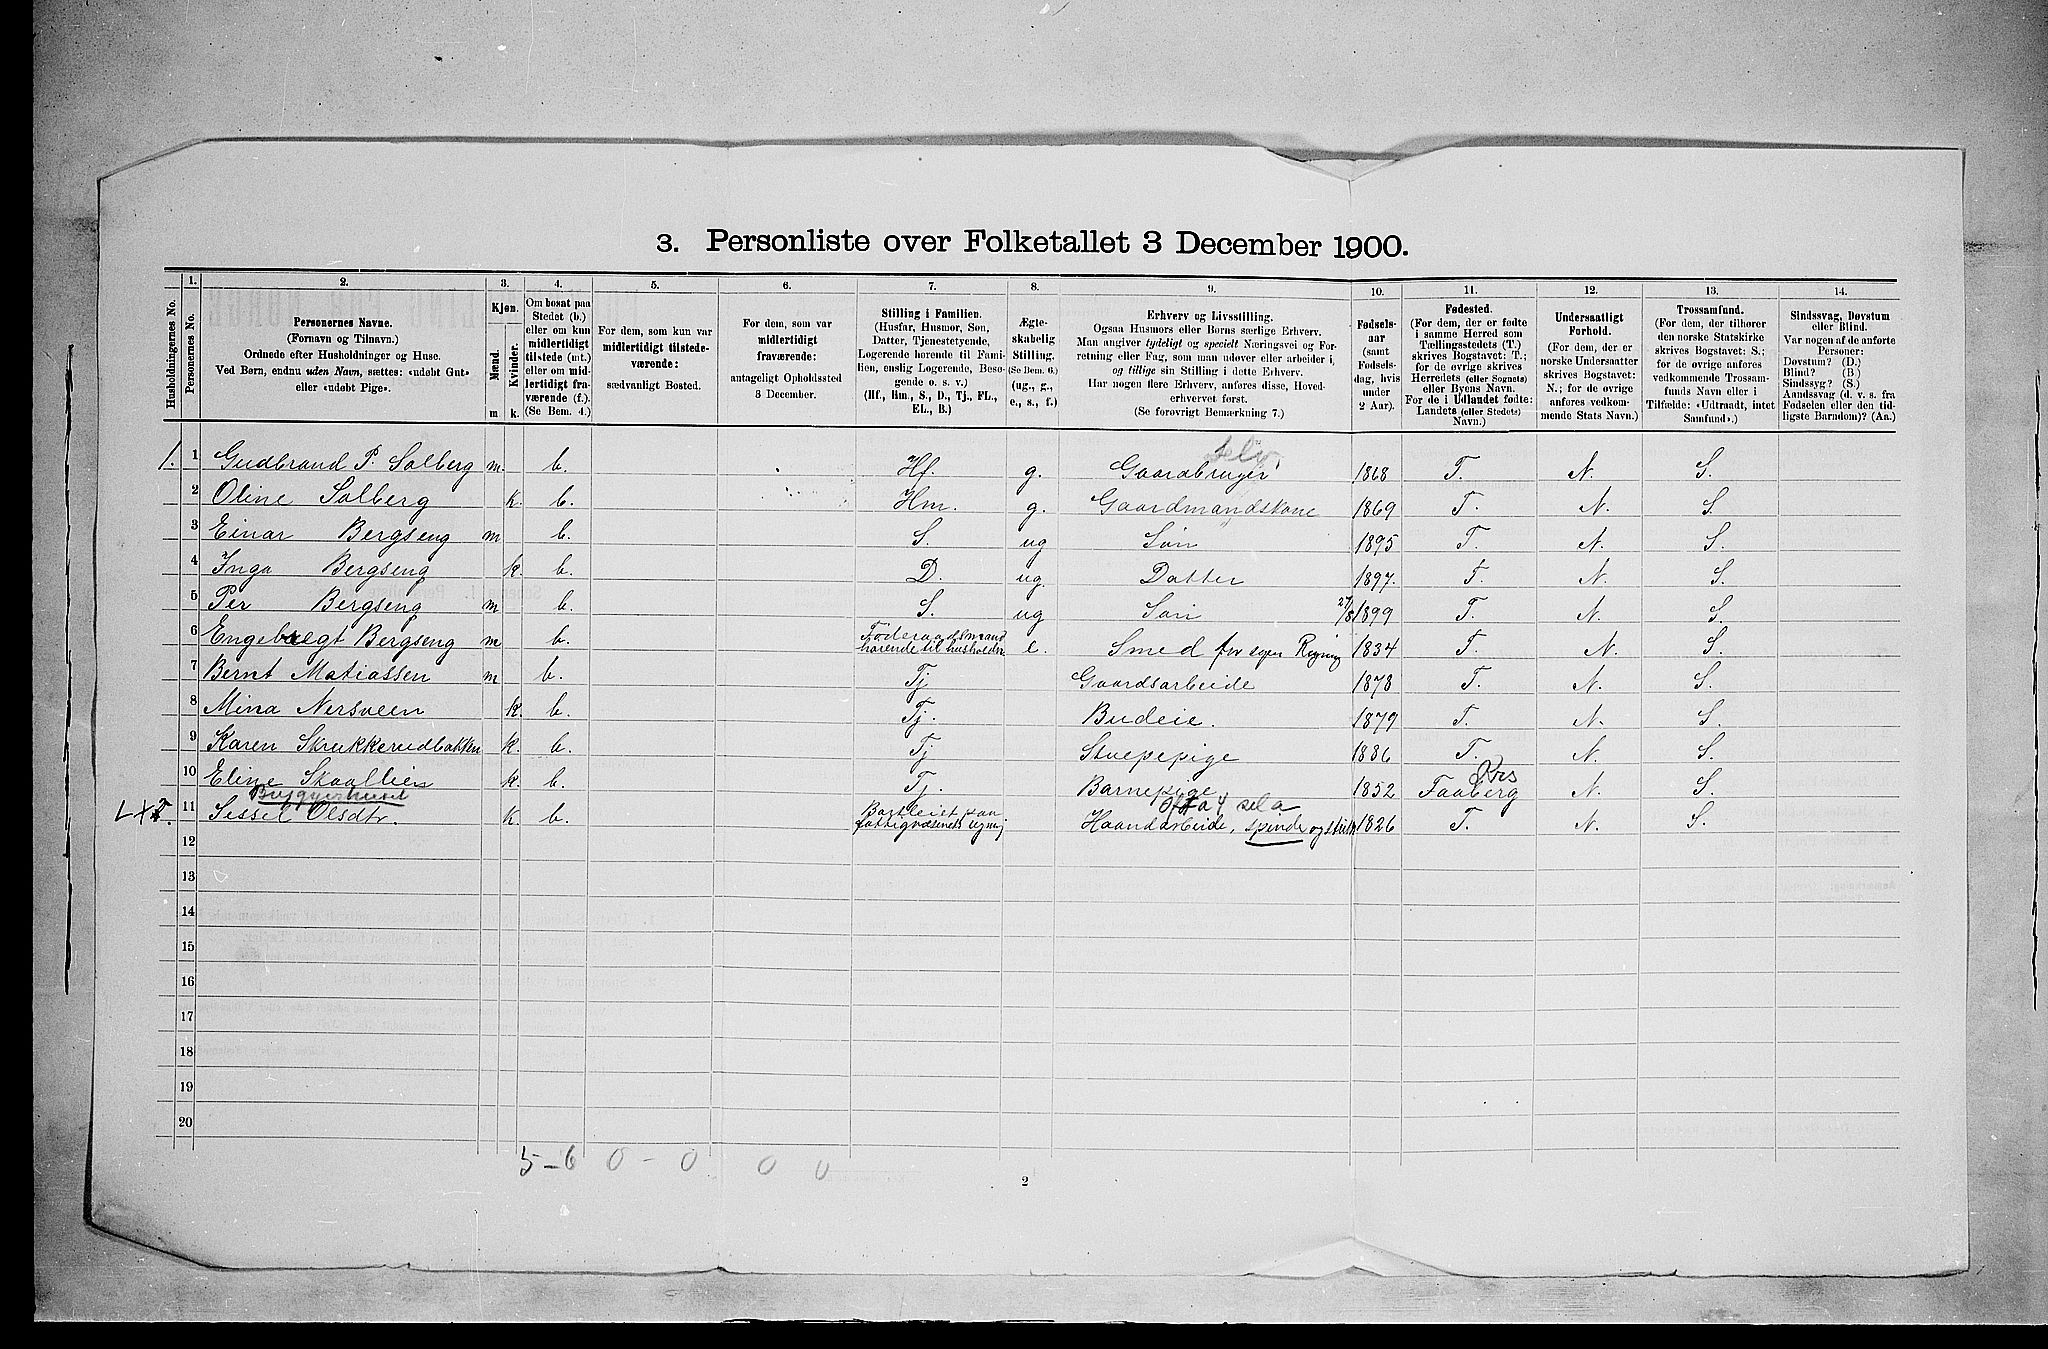 3. Personliste over Folketallet 3 December 1900.
1. 2. 3. 4. 5. 6. 7. 8. 9. 10. 11. 12. 13. 14.
Husholdningernes No.
Personernes No.
Personernes Navne.
(Fornavn og Tilnavn.)
Ordnede efter Husholdninger og Huse.
Ved Børn, endnu uden Navn, sættes: «udøbt Gut»
eller «udøbt Pige».
Kjøn.
Mænd.
Kvinder.
m k.
Om bosat paa
Stedet (b.)
eller om kun
midlertidigt
tilstede (mt.)
eller om mid-
lertidigt fra-
værende (f.)
(Se Bem. 4.)
For dem, som kun var
midlertidigt tilstede-
værende:
sædvanligt Bosted.
For dem, som var
midlertidigt
fraværende:
antageligt Opholdssted
3 December.
Stilling i Familien.
(Husfar, Husmor, Søn,
Datter, Tjenestetyende,
Logerende hørende til Fami-
lien, enslig Logerende, Besø-
gende o. s. v.)
(Hf., Hm., S., D., Tj., FL.,
EL., B.)
Ægte-
skabelig
Stilling.
(Se Bem. 6.)
(ug., g.,
e., s., f.)
Erhverv og Livsstilling.
Ogsaa Husmors eller Børns særlige Erhverv.
Man angiver tydeligt og specielt Næringsvei og For-
retning eller Fag, som man udøver eller arbeider i,
og tillige sin Stilling i dette Erhverv.
Har nogen flere Erhverv, anføres disse, Hoved-
erhvervet først.
(Se forøvrigt Bemærkning 7.)
Fødsels-
aar
(samt
Fødsels-
dag, hvis
under
2 Aar).
Fødested.
(For dem, der er fødte
i samme Herred som
Tællingsstedets (T.)
skrives Bogstavet: T.;
for de øvrige skrives
Herredets (eller Sognets)
eller Byens Navn.
For de i Udlandet fødte:
Landets (eller Stedets)
Navn.)
Undersaatligt
Forhold.
(For dem, der er
norske Undersaatter
skrives Bogstavet:
N.; for de øvrige
anføres vedkom-
mende Stats Navn.)
Trossamfund.
(For dem, der tilhører
den norske Statskirke
skrives Bogstavet: S.;
for de øvrige anføres
vedkommende Trossam-
funds Navn eller i
Tilfælde: «Udtraadt, intet
Samfund».)
Sindssvag, Døvstum
eller Blind.
Var nogen af de anførte
Personer:
Døvstum? (D.)
Blind? (B.)
Sindssyg? (S.)
Aandssvag (d. v. s. fra
Fødselen eller den tid-
ligste Barndom)? (Aa.)
selv
1. 1 Gudbrand P. Solberg m. b. Hf. g. Gaardbruger 1868 T. N. S.
2 Oline Solberg k. b. Hm. g. Gaardmandskone 1869 T. N. S.
3 Einar Bergseng m b. S. ug Søn 1895 T. N. S.
4 Inga Bergseng k. b. D. ug. Datter 1897. T. N. S.
5 Per Bergseng m b. S. ug Søn 27/8 1899 T. N. S.
6 Engebregt Bergseng m b. Føderaadsmand
hørende til husholdn. e. Smed for egen Regning 1834 T. N. S.
7 Bernt Matiassen m b. Tj Gaardsarbeide 1878 T. N. S.
8 Mina Nersveen k. b. Tj. Budeie. 1879 T. N. S.
9 Karen Skrukkerudbakken k. b. Tj Stuepepige 1886 T. N. S.
Krs
10 Eline Skaallien k. b. Tj. Barnepige 1852 Faaberg N. S.
Byggerhuset
2. 11 Sissel Olsdtr. k. b. Haandarbeide, spinde og strik 1826 T. N. S.
12
13
14
15
16
17
18
19
20
5–6 0–0 0 0
2